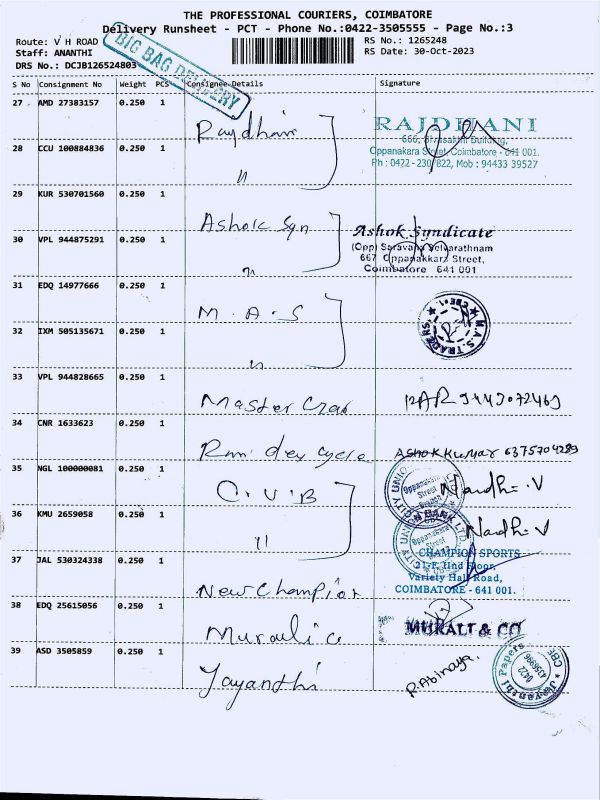 THE PROFESSIONAL COURIERS, COIMBATORE
Delivery Runsheet - PCT - Phone No.:0422-3505555 - Page No.:3
Route: V H ROAD
Staff: ANANTHI
DRS No.: DCJB126524803
BIG BAG DELIVERY
RS No.: 1265248
RS Date: 30-Oct-2023
S No Consignment No Weight PCS Consignee Details Signature
27 AMD 27383157 0.250 1 Raydhani
RAJDHANI
Oppanakara Street, Coimbatore - 641 001.
Ph : 0422 - 230 822, Mob : 94433 39527
28 CCU 100884836 0.250 1 "
29 KUR 530701560 0.250 1 Ashok Syn
Ashok Syndicate
(Opp) Saravana Selvarathnam
667 Oppanakkara Street,
Coimbatore 641 001
30 VPL 944875291 0.250 1 "
31 EDQ 14977666 0.250 1 M.A.S
M.A.S. TRADERS
CBE-1.
32 IXM 505135671 0.250 1 "
33 VPL 944828665 0.250 1 Master
34 CNR 1633623 0.250 1 cycle
ASHOKKUMAR 6375704289
35 NGL 100000081 0.250 1 C.U.B
Oppanakara Street
Nandhi.V
36 KMU 2659058 0.250 1 "
Oppanakara Street
Nandhi.V
37 JAL 530324338 0.250 1 New Champion
CHAMPION SPORTS
21-F, IInd Floor,
Variety Hall Road,
COIMBATORE - 641 001.
38 EDQ 25615056 0.250 1 Murali co
MURALI & CO
39 ASD 3505859 0.250 1 Jayanthi
R.Abinaya.
Jayanthi Papers
CBE
0422
4356996